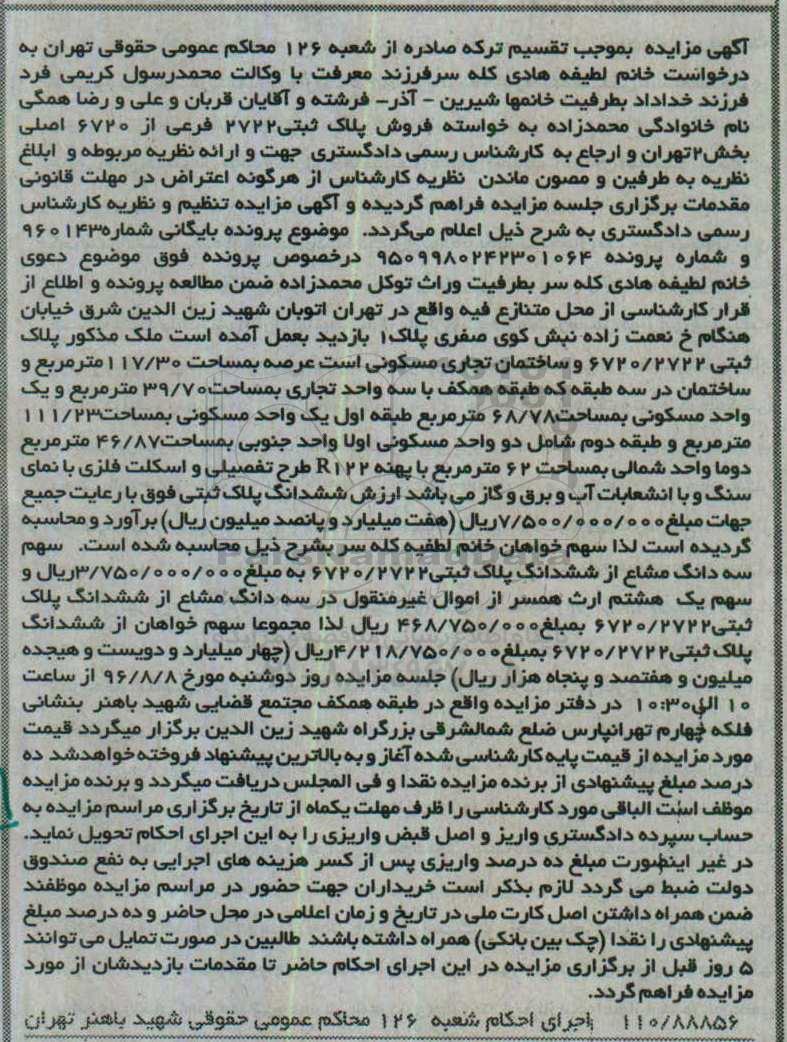 آگهی مزایده بموجب تقسیم ترکه صادره از شعبه ۱۲۶ محاکم عمومی حقوقی تهران به
درخواست خانم لطیفه هادی کله سرفرزند معرفت با وکالت محمدرسول کریمی فرد
فرزند خداداد بطرفیت خانمها شیرین - آذر- فرشته و آقایان قربان و علی و رضا همگی
نام خانوادگی محمدزاده به خواسته فروش پلاک ثبتی۲۷۲۲ فرعی از ۶۷۲۰ اصلی
بخش۲تهران و ارجاع به کارشناس رسمی دادگستری جهت و ارائه نظریه مربوطه و ابلاغ
نظریه به طرفین و مصون ماندن نظریه کارشناس از هرگونه اعتراض در مهلت قانونی
مقدمات برگزاری جلسه مزایده فراهم گردیده و آگهی مزایده تنظیم و نظریه کارشناس
رسمی دادگستری به شرح ذیل اعلام می‌گردد. موضوع پرونده بایگانی شماره۹۶۰۱۴۳
و شماره پرونده ۹۵۰۹۹۸۰۲۴۲۳۰۱۰۶۴ درخصوص پرونده فوق موضوع دعوی
خانم لطیفه هادی کله سر بطرفیت وراث توکل محمدزاده ضمن مطالعه پرونده و اطلاع از
قرار کارشناسی از محل متنازع فیه واقع در تهران اتوبان شهید زین الدین شرق خیابان
هنگام خ نعمت زاده نبش کوی صفری پلاک۱ بازدید بعمل آمده است ملک مذکور پلاک
ثبتی ۶۷۲۰/۲۷۲۲ و ساختمان تجاری مسکونی است عرصه بمساحت ۱۱۷/۳۰مترمربع و
ساختمان در سه طبقه که طبقه همکف با سه واحد تجاری بمساحت۳۹/۷۰ مترمربع و یک
واحد مسکونی بمساحت۶۸/۷۸ مترمربع طبقه اول یک واحد مسکونی بمساحت۱۱۱/۲۳
مترمربع و طبقه دوم شامل دو واحد مسکونی اولا واحد جنوبی بمساحت۴۶/۸۷ مترمربع
دوما واحد شمالی بمساحت ۶۲ مترمربع با پهنه R۱۲۲ طرح تفصیلی و اسکلت فلزی با نمای
سنگ و با انشعابات آب و برق و گاز می باشد ارزش ششدانگ پلاک ثبتی فوق با رعایت جمیع
جهات مبلغ۷/۵۰۰/۰۰۰/۰۰۰ریال (هفت میلیارد و پانصد میلیون ریال) برآورد و محاسبه
گردیده است لذا سهم خواهان خانم لطفیه کله سر بشرح ذیل محاسبه شده است. سهم
سه دانگ مشاع از ششدانگ پلاک ثبتی۶۷۲۰/۲۷۲۲ به مبلغ۳/۷۵۰/۰۰۰/۰۰۰ریال و
سهم یک هشتم ارث همسر از اموال غیرمنقول در سه دانگ مشاع از ششدانگ پلاک
ثبتی۶۷۲۰/۲۷۲۲ بمبلغ۴۶۸/۷۵۰/۰۰۰ ریال لذا مجموعا سهم خواهان از ششدانگ
پلاک ثبتی۶۷۲۰/۲۷۲۲ بمبلغ۴/۲۱۸/۷۵۰/۰۰۰ریال (چهار میلیارد و دویست و هیجده
میلیون و هفتصد و پنجاه هزار ریال) جلسه مزایده روز دوشنبه مورخ ۹۶/۸/۸ از ساعت
۱۰ الی۱۰:۳۰ در دفتر مزایده واقع در طبقه همکف مجتمع قضایی شهید باهنر بنشانی
فلکه چهارم تهرانپارس ضلع شمالشرقی بزرگراه شهید زین الدین برگزار میگردد قیمت
مورد مزایده از قیمت پایه کارشناسی شده آغاز و به بالاترین پیشنهاد فروخته خواهدشد ده
درصد مبلغ پیشنهادی از برنده مزایده نقدا و فی المجلس دریافت میگردد و برنده مزایده
موظف است الباقی مورد کارشناسی را ظرف مهلت یکماه از تاریخ برگزاری مراسم مزایده به
حساب سپرده دادگستری واریز و اصل قبض واریزی را به این اجرای احکام تحویل نماید.
در غیر اینصورت مبلغ ده درصد واریزی پس از کسر هزینه های اجرایی به نفع صندوق
دولت ضبط می گردد لازم بذکر است خریداران جهت حضور در مراسم مزایده موظفند
ضمن همراه داشتن اصل کارت ملی در تاریخ و زمان اعلامی در محل حاضر و ده درصد مبلغ
پیشنهادی را نقدا (چک بین بانکی) همراه داشته باشند طالبین در صورت تمایل می توانند
۵ روز قبل از برگزاری مزایده در این اجرای احکام حاضر تا مقدمات بازدیدشان از مورد
مزایده فراهم گردد.
۱۱۰/۸۸۸۵۶ اجرای احکام شعبه ۱۲۶ محاکم عمومی حقوقی شهید باهنر تهران